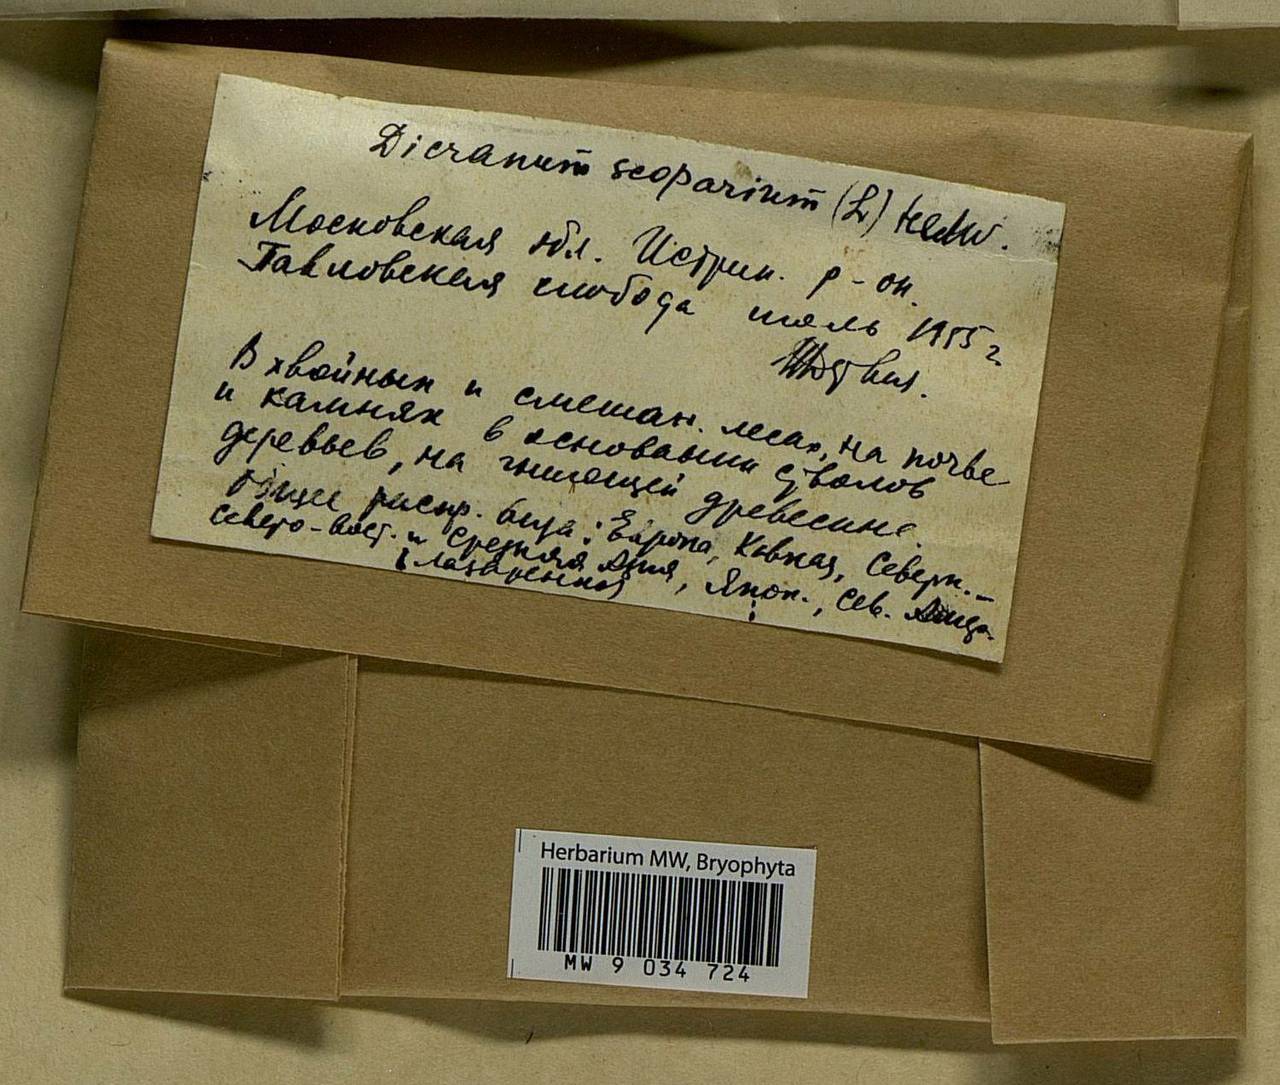 Dicranum scoparium (L) Hedw.
Московская обл. Истрин. р-он.
Павловская слобода июль 1955 г.
В хвойных и смешан. лесах, на почве
и камнях в основании стволов
деревьев, на гниющей древесине.
Общее распр. вида: Европа, Кавказ, Северн.-
северо-вост. и Средняя Азия, Япон., Сев.
Herbarium MW, Bryophyta
MW 9 034 724